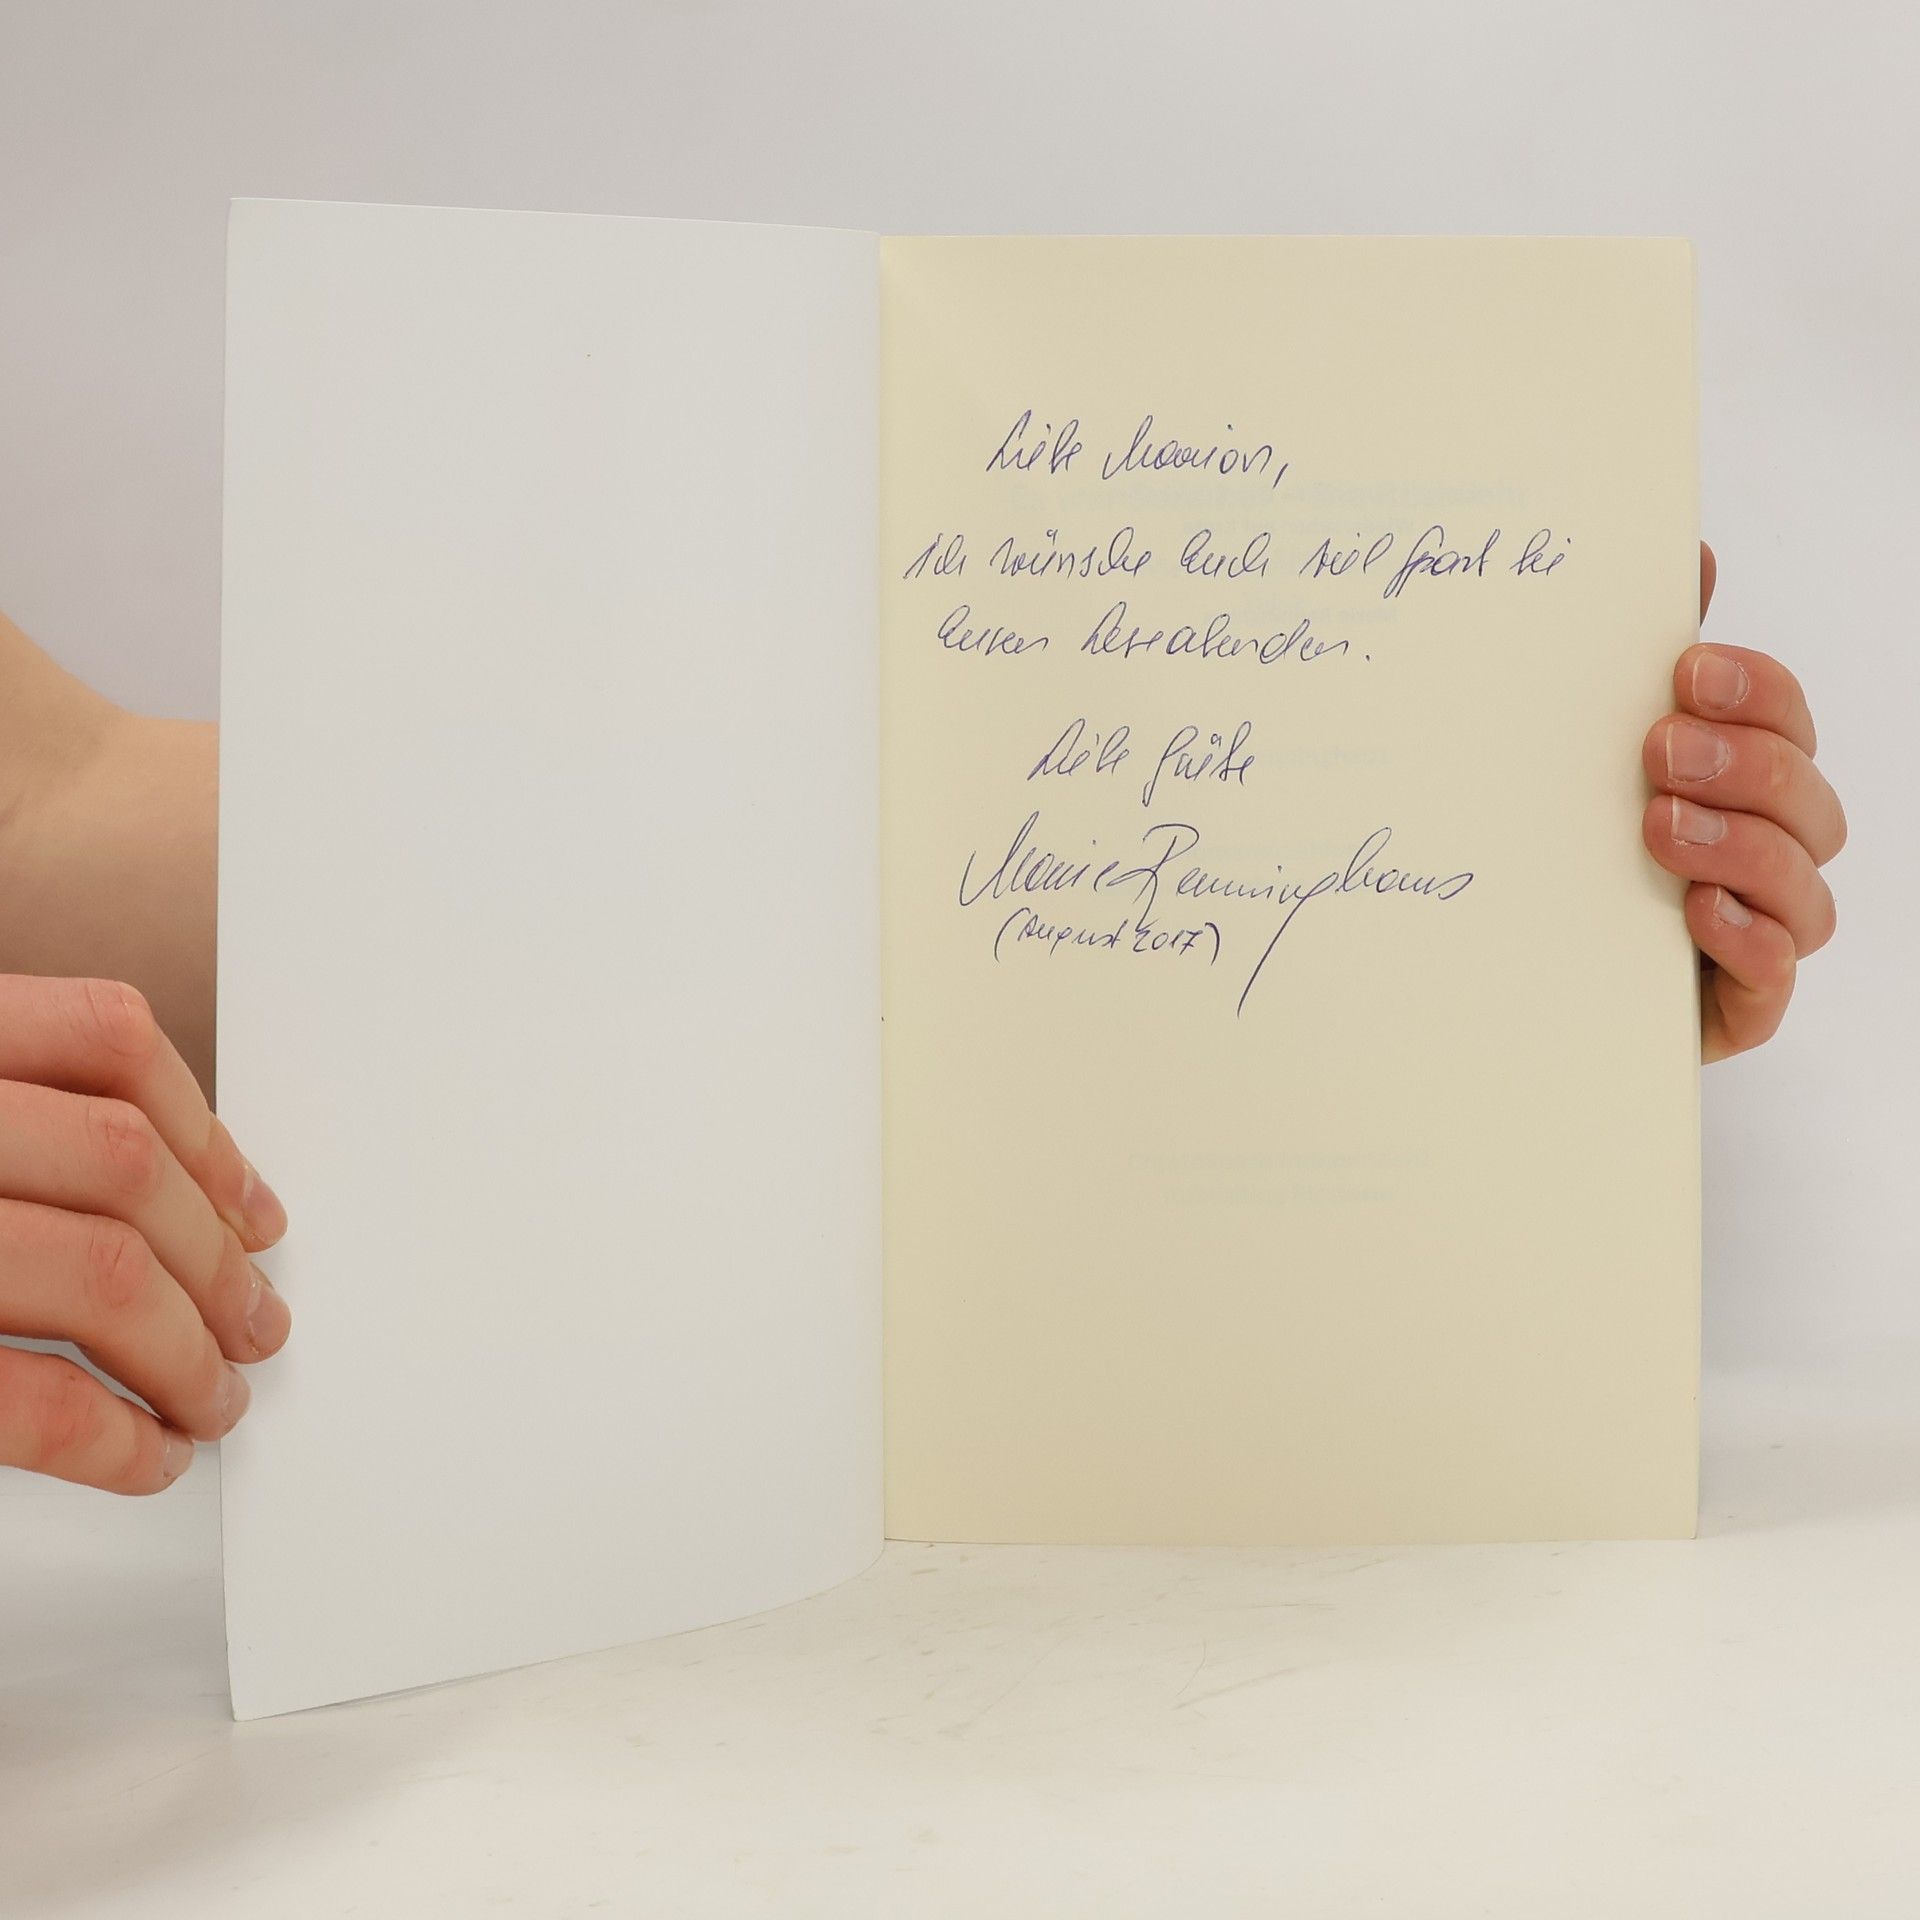 Liebe Marion,
ich wünsche Euch viel Spaß bei
Euren Leseabenden.
Liebe Grüße
Marie
(August 2017)